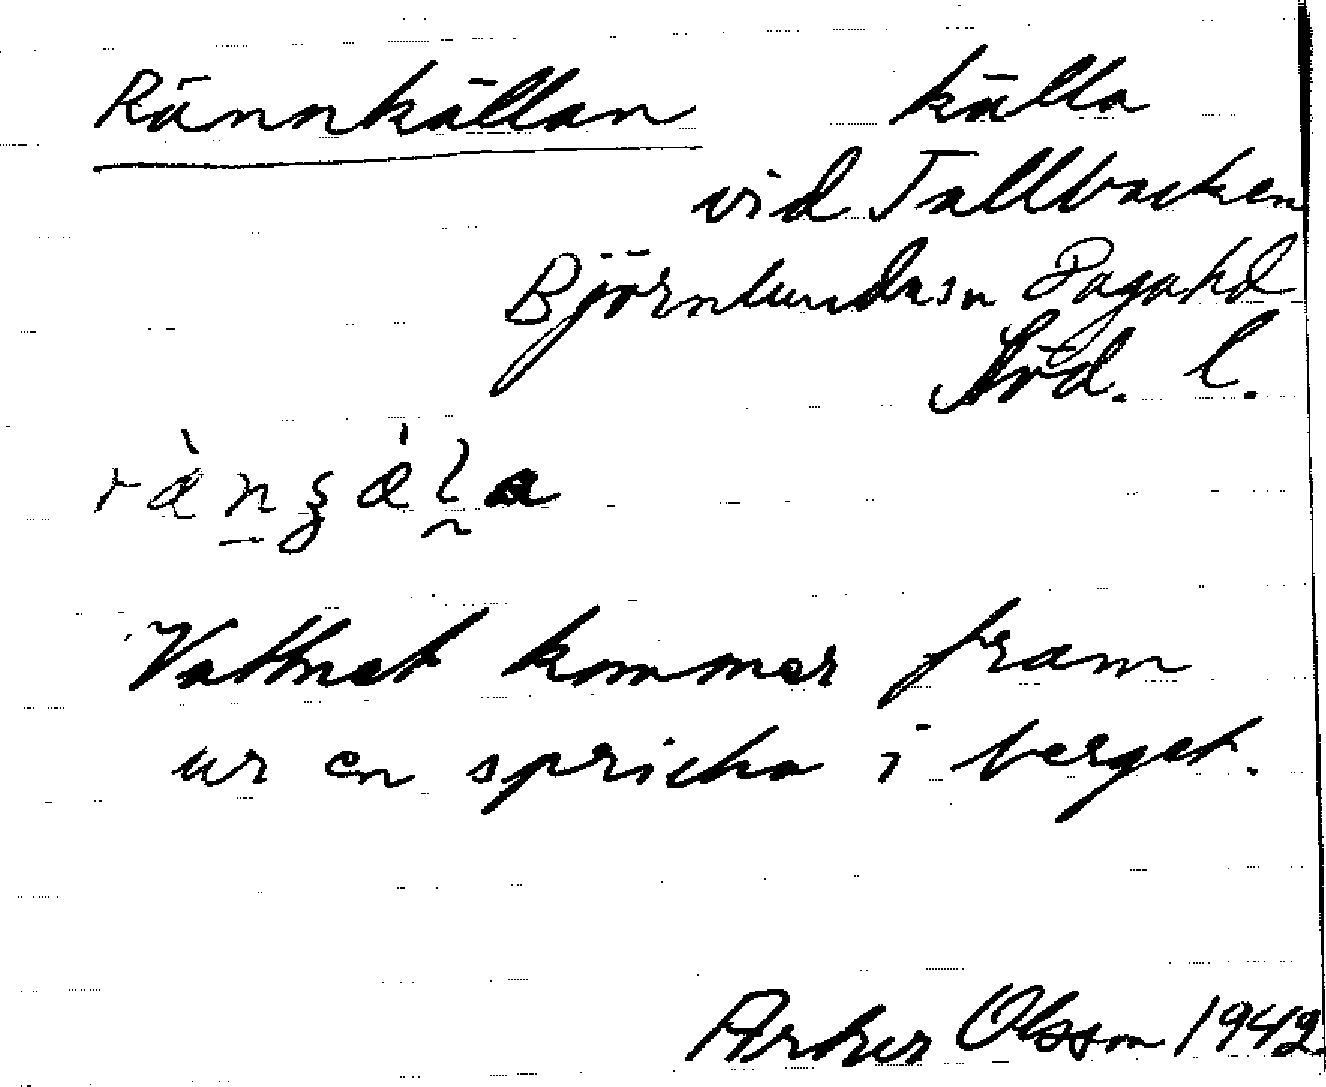 Rännkällan källa
vid Tallbacken
Björnlunda sn Daga hd
Söd. l.
Vattnet kommer fram
ur en spricka i berget.
Olsson 1942